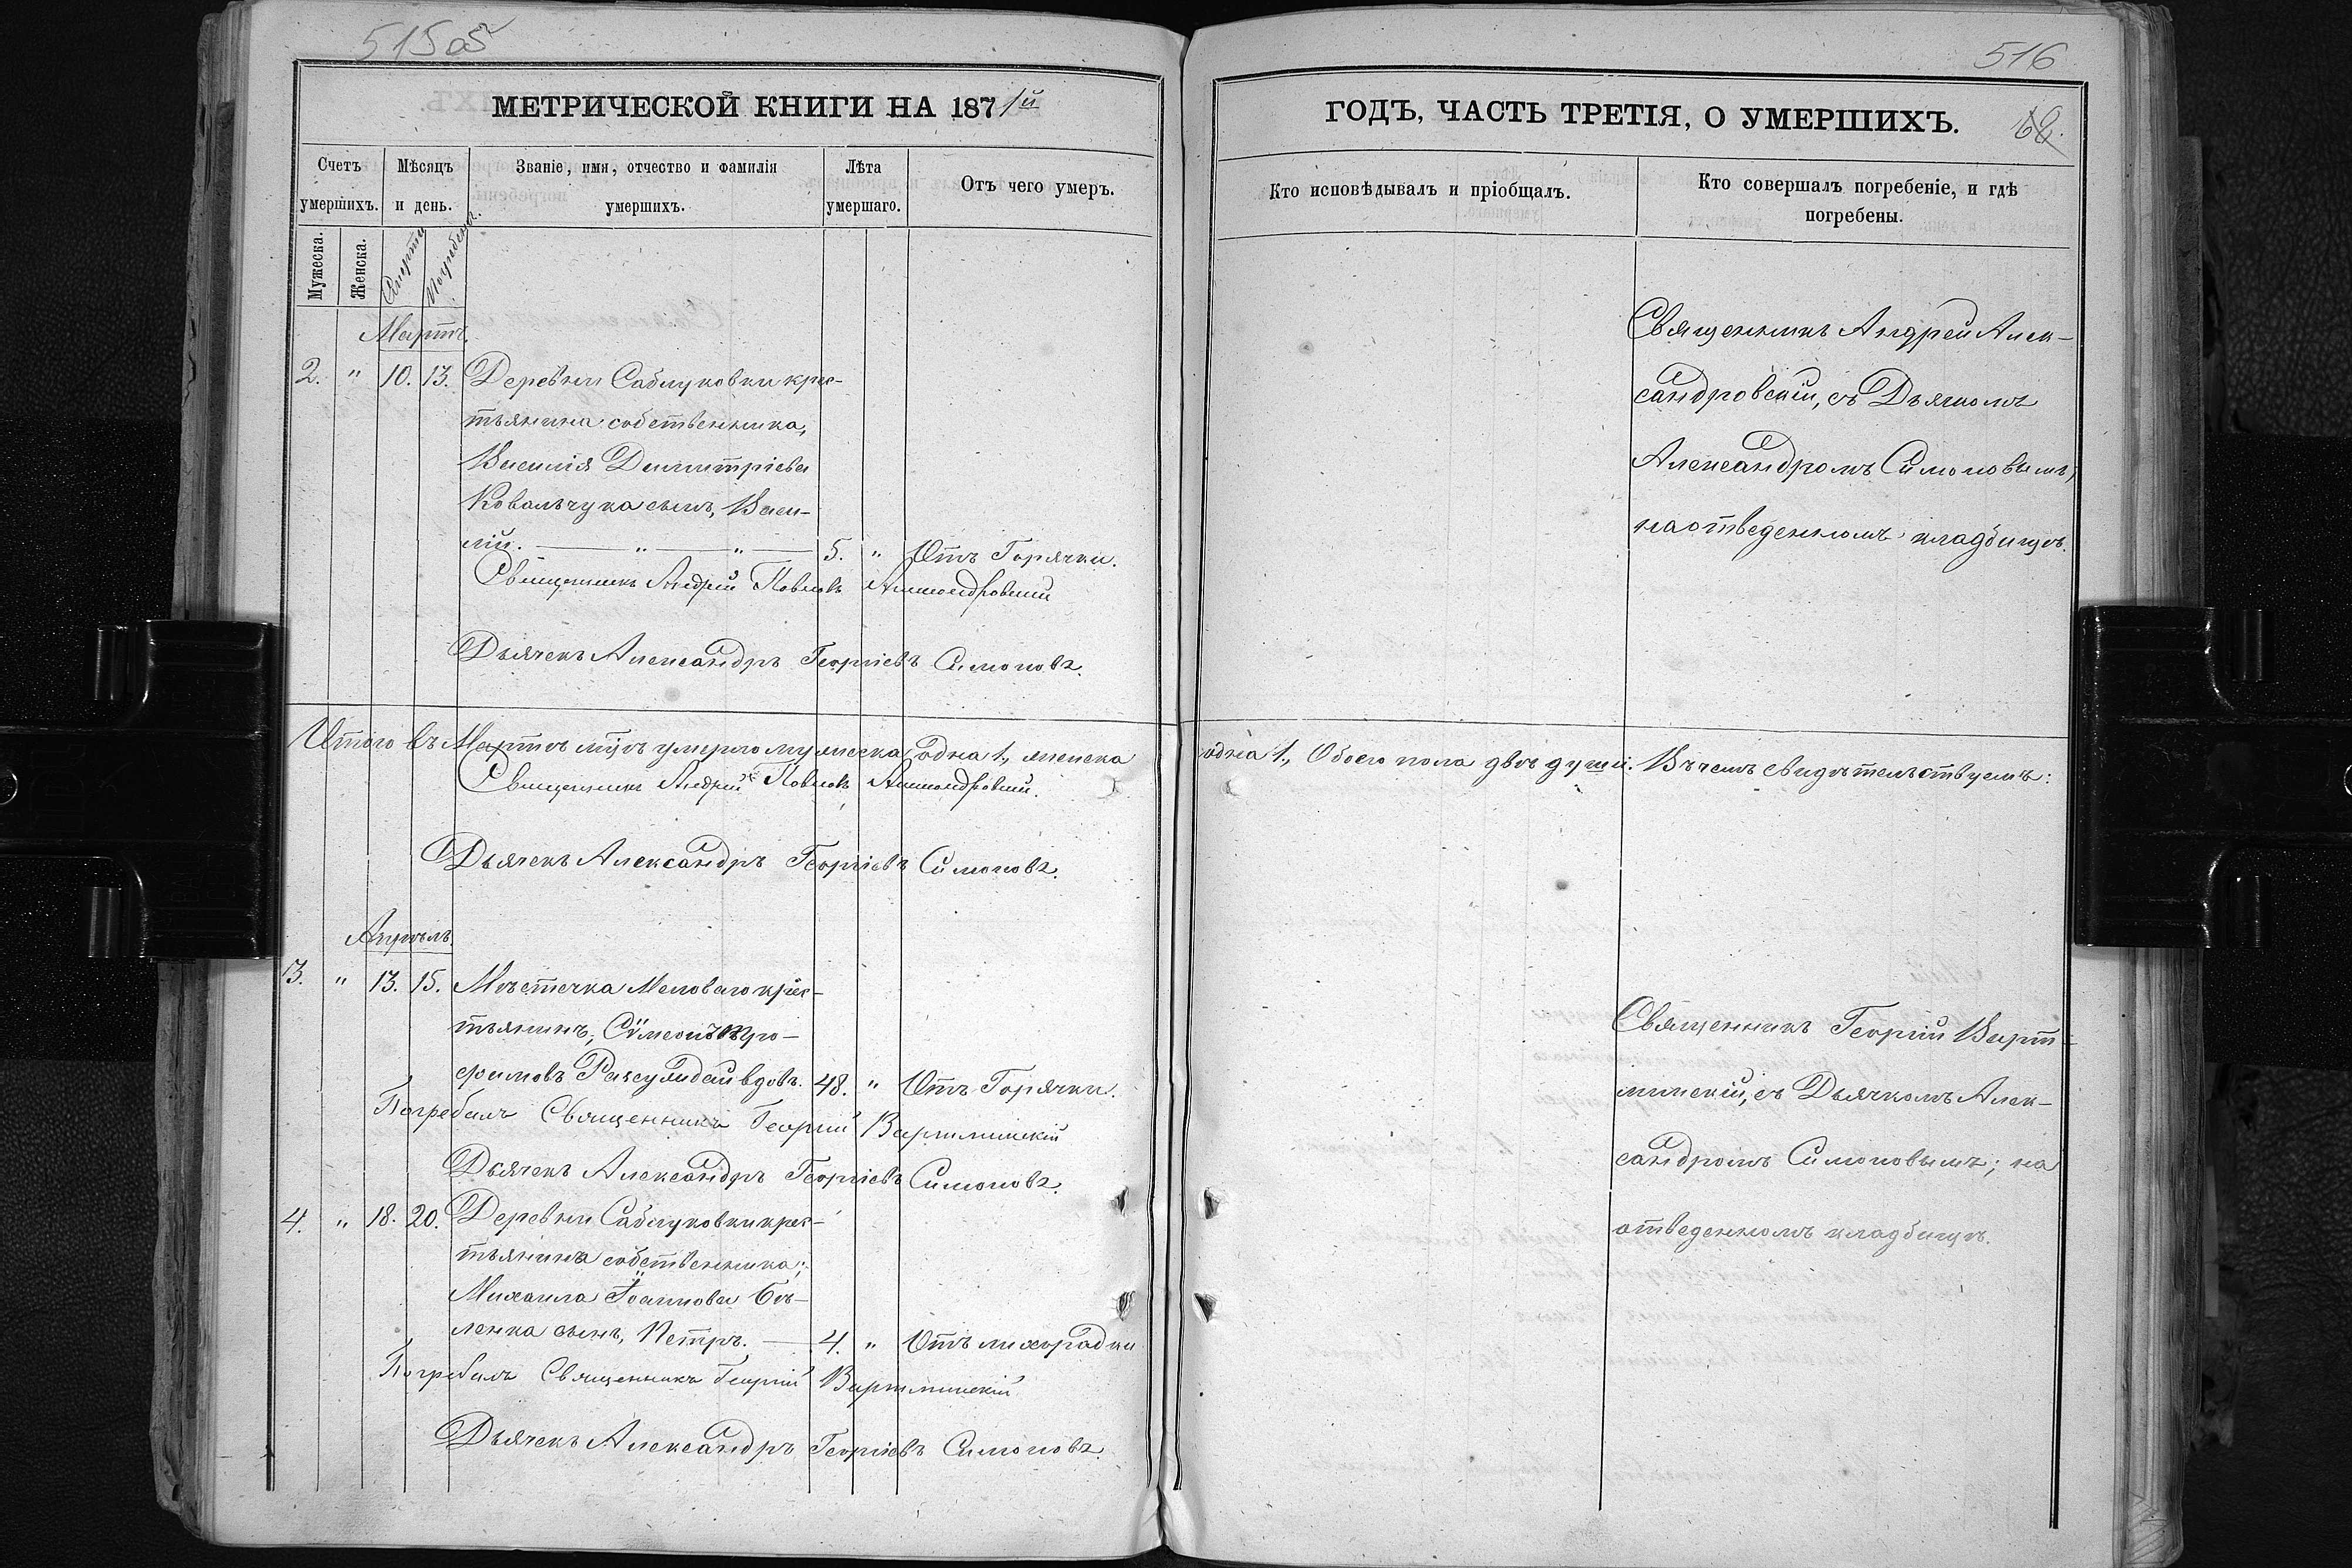 515об
МЕТРИЧЕСКОЙ КНИГИ НА 1871й
Счетъ умершихъ.
Мѣсяцъ и день.
Званіе, имя, отчество и фамилія умершихъ.
Лѣта умершаго.
Отъ чего умеръ.
Мужеска.
Женска.
Смерти
Погребенія.
Мартъ.
2. " 10. 13. Деревни Саблуковки крес-
тьянина собственника,
Василія Димитріева
Ковальчука сынъ, Васи-
лій. — " — " — 5. " Отъ Горячки.
Священникъ Андрей Павловъ Александровскій
Дьячекъ Александръ Георгіевъ Симоновъ.
Итого въ Мартѣ мцѣ умерло мужеска одна 1, женска
Священникъ Андрей Павловъ Александровскій.
Дьячекъ Александръ Георгіевъ Симоновъ.
Апрѣль.
3. " 13. 15. Мѣстечка Меловаго крес-
тьянинъ, Сѵмеонъ Тро-
фимовъ вдовъ. 48. " Отъ Горячки.
Погребалъ Священникъ Георгій
Дьячекъ Александръ Георгіевъ Симоновъ.
4. " 18. 20. Деревни Саблуковки крес-
тьянина собственника,
Михаила Іоаннова Бѣ-
ленка сынъ, Петръ. — 4. " Отъ лихорадки
Погребалъ Священникъ Георгій
Дьячекъ Александръ Георгіевъ Симоновъ.
516
ГОДЪ, ЧАСТЬ ТРЕТІЯ, О УМЕРШИХЪ.
68.
Кто исповѣдывалъ и пріобщалъ.
Кто совершалъ погребеніе, и гдѣ
погребены.
Священникъ Андрей Алек-
сандровскій, съ Дьячкомъ
Александромъ Симоновымъ,
на отведенномъ кладбищѣ.
одна 1, Обоего пола двѣ души. Въ чемъ свидѣтельствуемъ:
Священникъ Георгій
съ Дьячкомъ Алек-
сандромъ Симоновымъ; на
отведенномъ кладбищѣ.